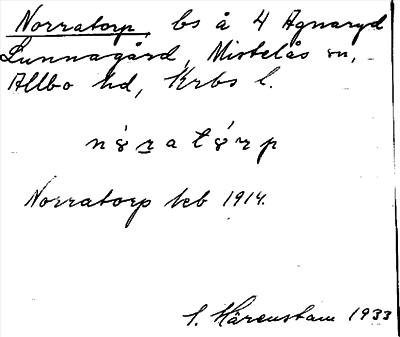 Norratorp, bs å 4 Agnaryd
Lunnagård, Mistelås sn,
Allbo hd, Krbs l.
nór̲atórp
Norratorp keb 1914.
S. Härenstam 1933